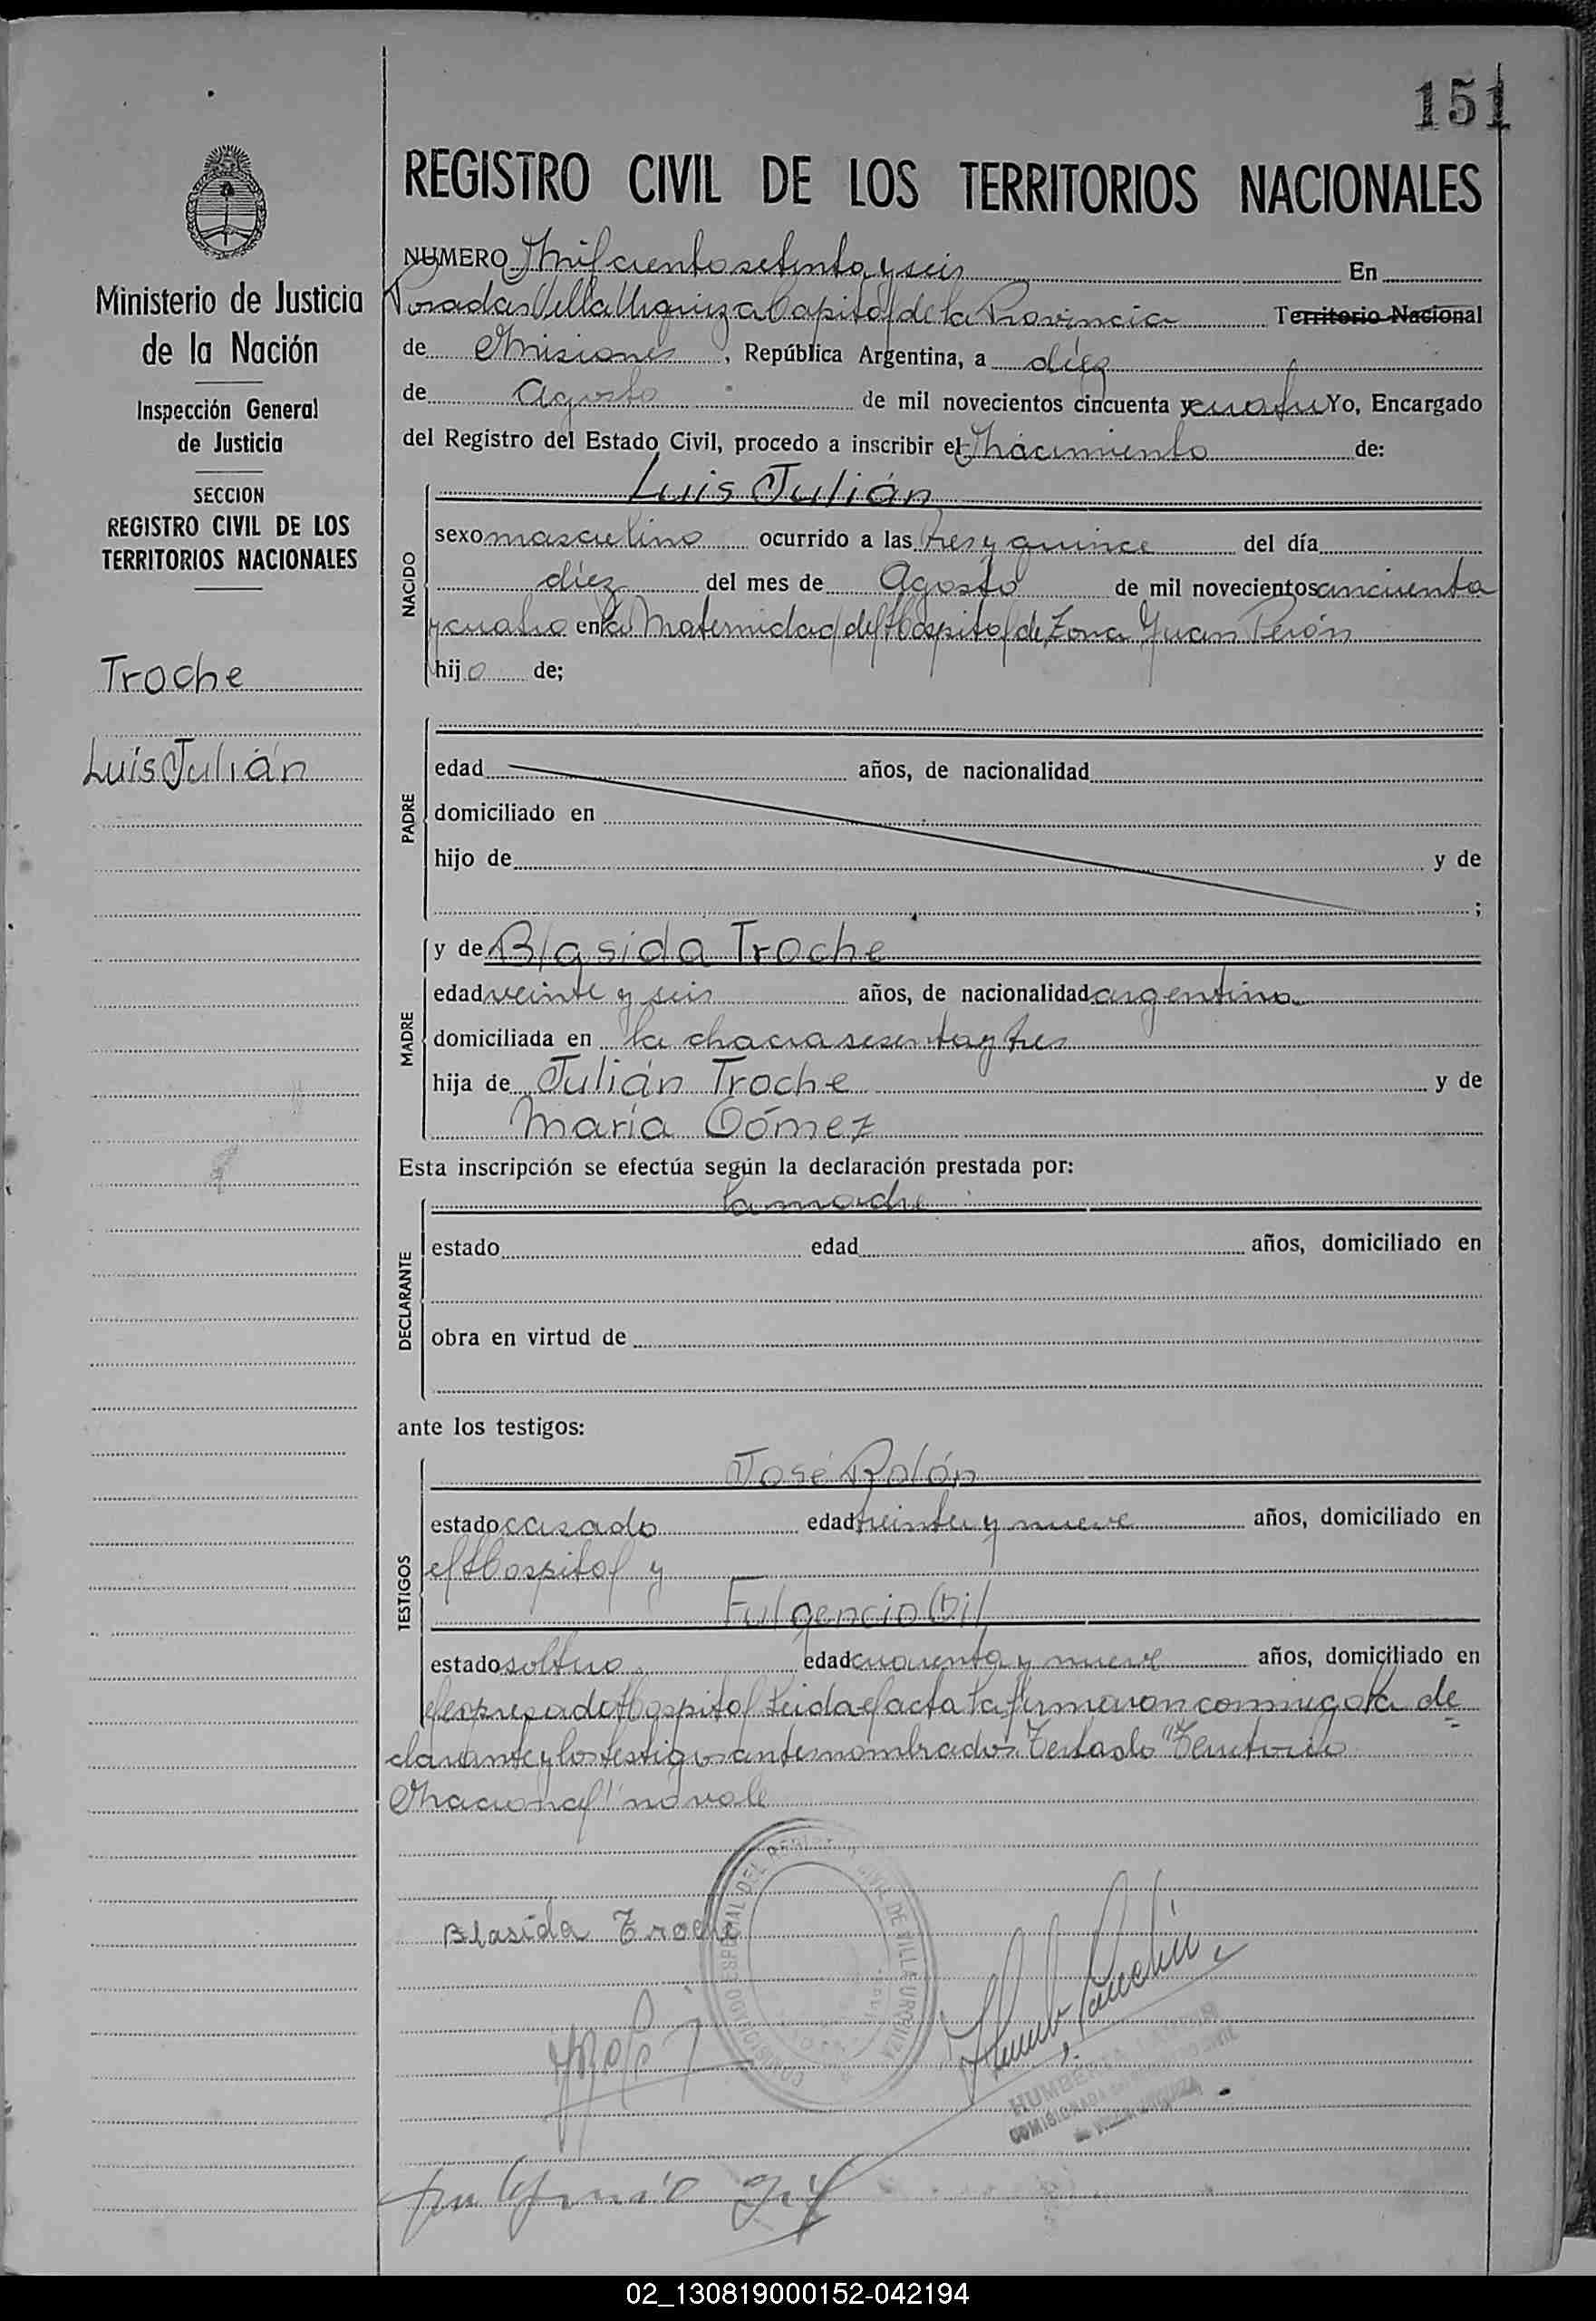 151
REGISTRO CIVIL DE LOS TERRITORIOS NACIONALES
Ministerio de Justicia
de la Nación
Inspección General
de Justicia
SECCION
REGISTRO CIVIL DE LOS
TERRITORIOS NACIONALES
Troche
Luis Julián
NUMERO Mil ciento setenta y seis En
Posadas Villa Urquiza Capital de la Provincia Territorio Nacional
de Misiones, República Argentina, a diez
de Agosto de mil novecientos cincuenta y cuatro Yo, Encargado
del Registro del Estado Civil, procedo a inscribir el Nacimiento de:
NACIDO
Luis Julián
sexo masculino ocurrido a las tres y quince del día
diez del mes de Agosto de mil novecientos cincuenta
y cuatro en la Maternidad del Hospital de Zona Juan Perón
hijo de;
PADRE
edad años, de nacionalidad
domiciliado en
hijo de y de
;
MADRE
y de Blasida Troche
edad veinte y seis años, de nacionalidad argentina
domiciliada en la chacra sesenta y tres
hija de Julián Troche y de
María Gómez
Esta inscripción se efectúa según la declaración prestada por:
DECLARANTE
la madre
estado edad años, domiciliado en
obra en virtud de
ante los testigos:
TESTIGOS
José Rolón
estado casado edad treinta y nueve años, domiciliado en
el Hospital y
Fulgencio Gil
estado soltero edad cuarenta y nueve años, domiciliado en
el expresado Hospital Leida el acta la firmaron conmigo la de=
clarante y los testigos antes nombrados Testado "Territorio
Nacional" no vale
COMISIONADO ESPECIAL DEL REGISTRO CIVIL DE VILLA URQUIZA
Blasida Troche
HUMBERTO
COMISIONADO REGISTRO CIVIL
DE VILLA URQUIZA
Fulgencio Gil
02_130819000152-042194